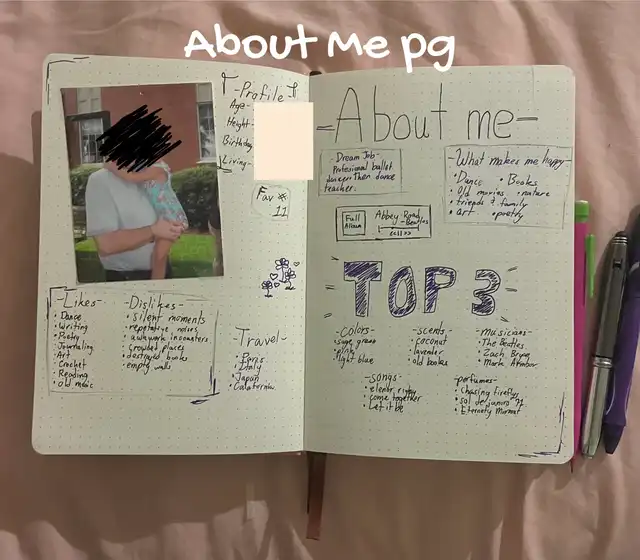 About Me pg
-Profile-
Age-
Height-
Birthday
Living-
Fav #
11
-Likes-
• Dance
• Writing
• Poetry
• Journaling
• Art
• Crochet
• Reading
• old music
-Dislikes-
• silent moments
• repetative noises
• awkwork incounters
• crowded places
• destroyed books
• empty walls
-Travel-
• Paris
• Italy
• Japan
• Calafornia
-About me-
-Dream Job-
Profesional ballet
dancer then dance
teacher.
-What makes me happy-
• Dance • Books
• Old movies • nature
• friends & family
• art • poetry
Full
Album
Abbey Road
-Beatles
TOP 3
-colors-
• sage green
• pink
• light blue
-scents-
• coconut
• lavender
• old books
-musicians-
• The Beatles
• Zach Bryan
• Mark Ambor
-songs-
• elenor rigby
• come together
• Let it be
-perfumes-
• chasing firefly
• sol de janiro
• Eternety